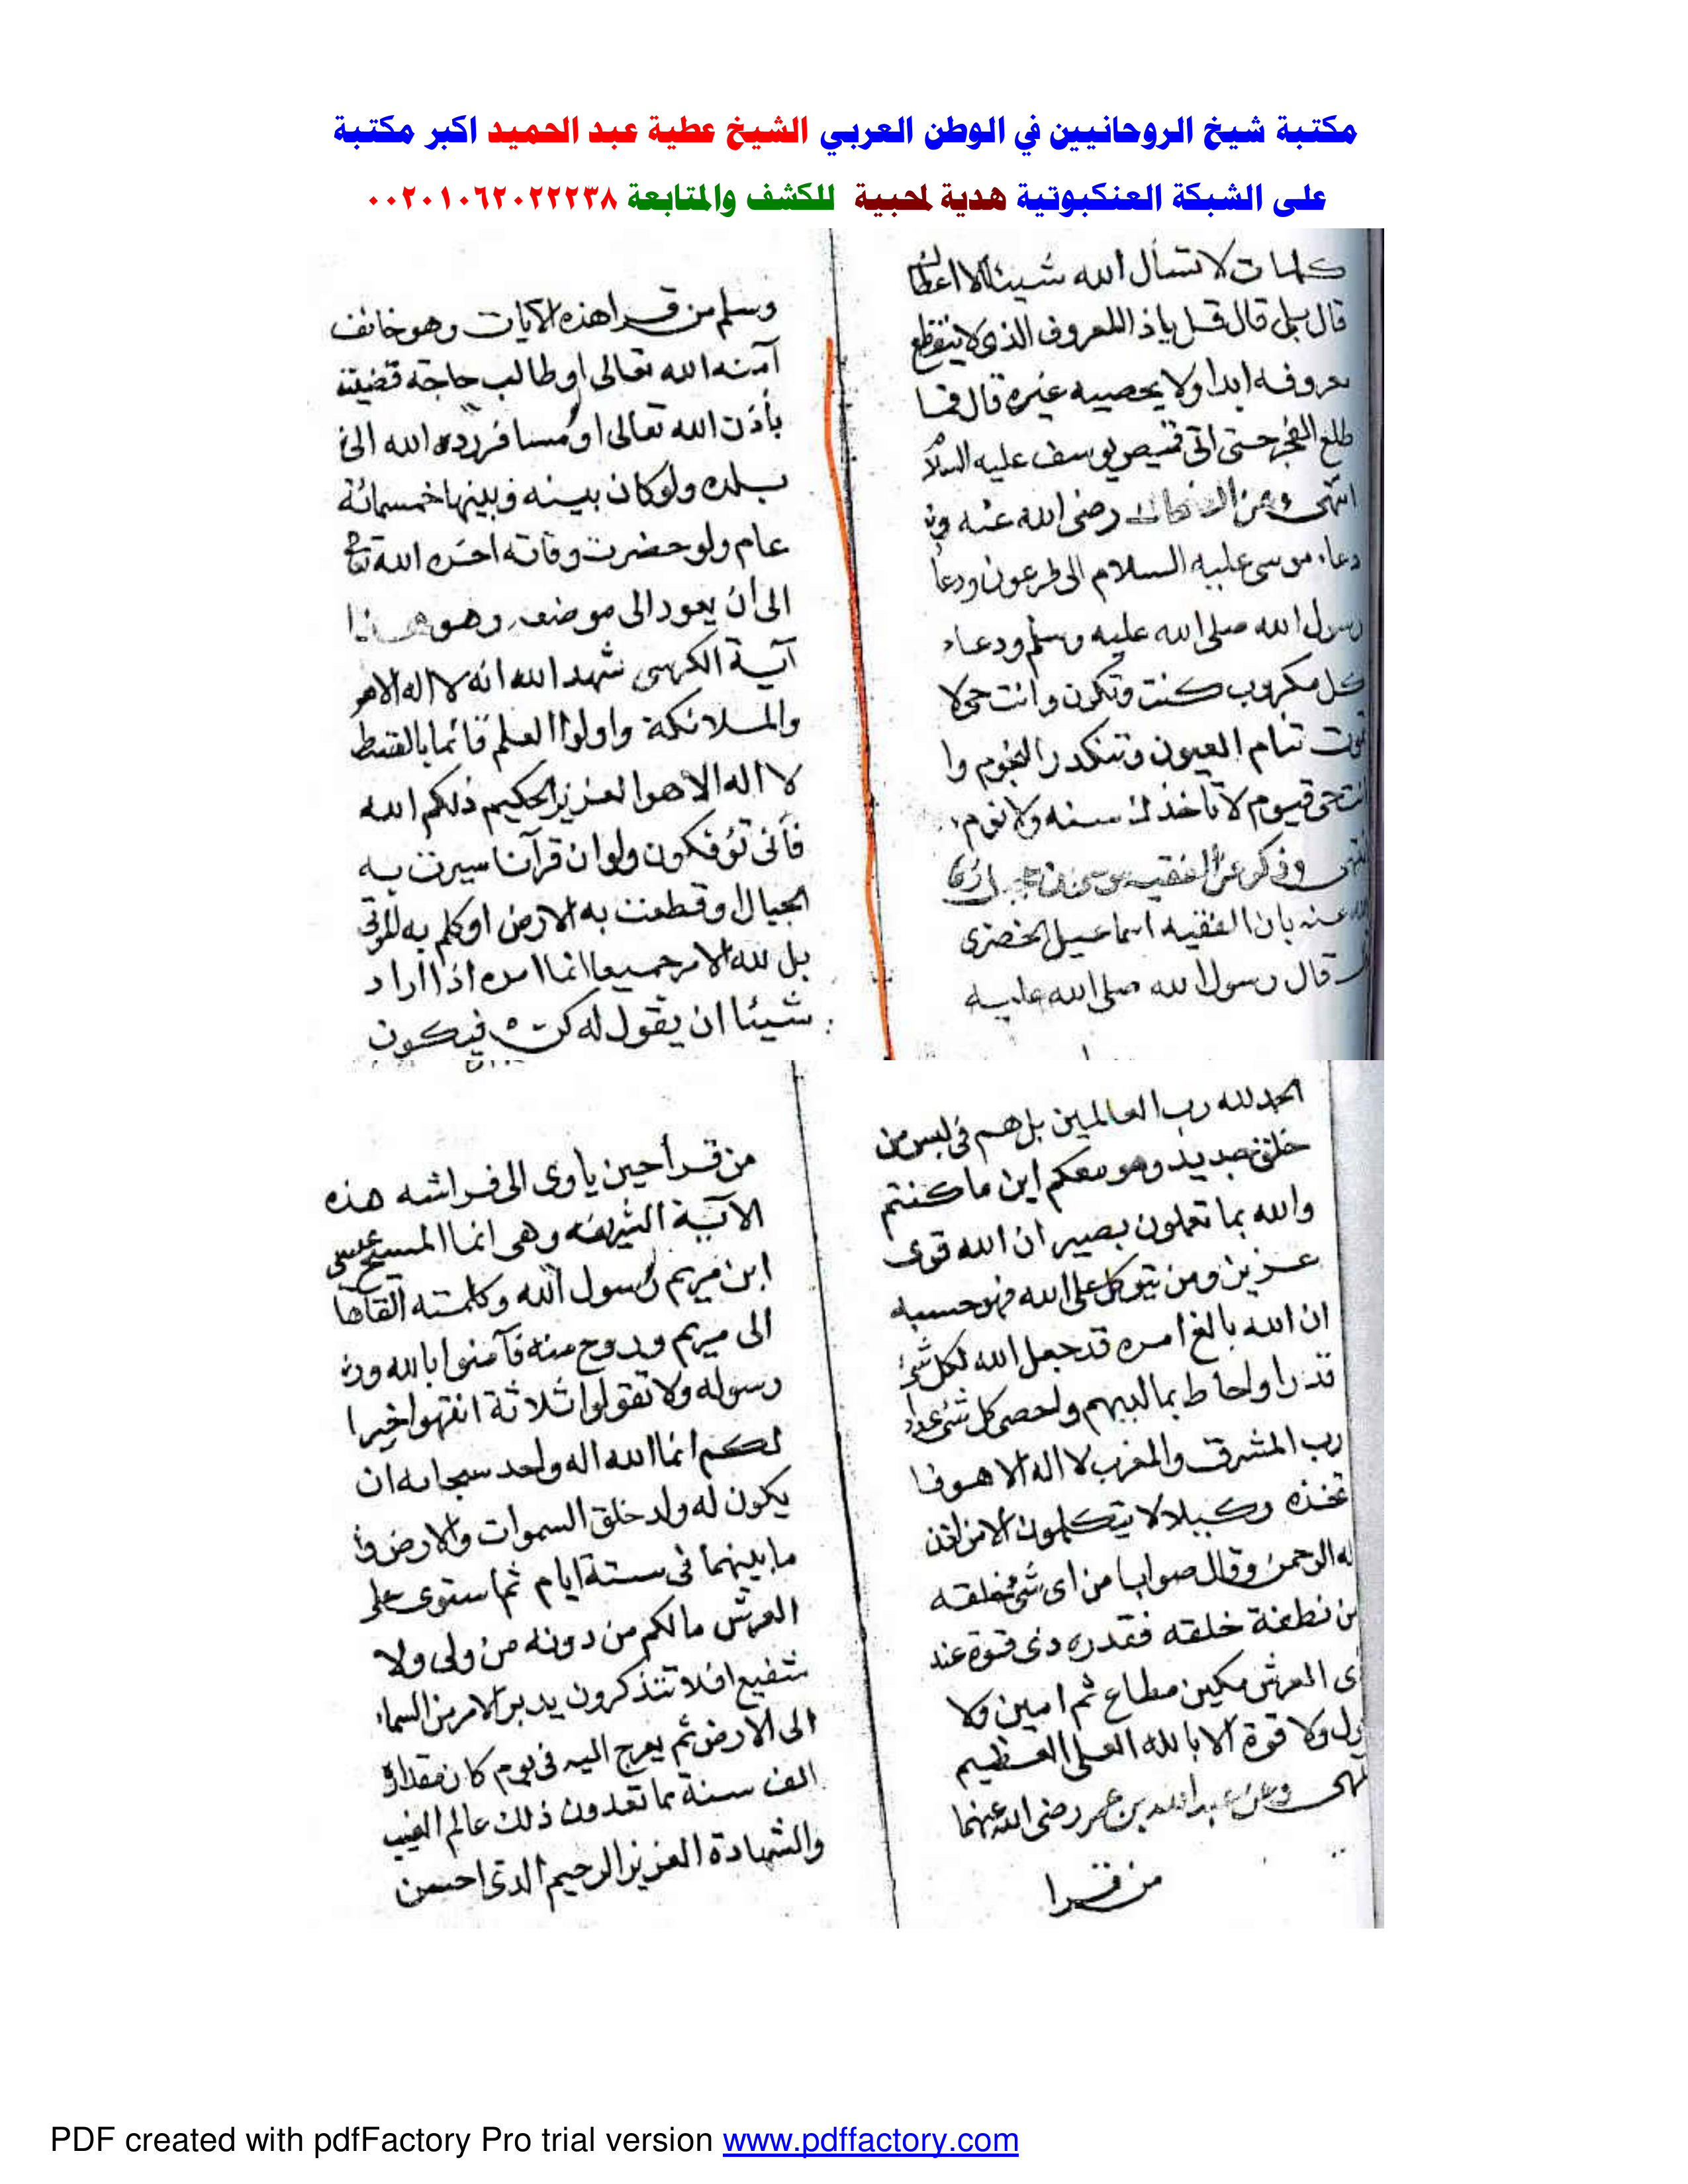 مكتبة شيخ الروحانيين في الوطن العربي الشيخ عطية عبد الحميد اكبر مكتبة
على الشبكة العنكبوتية هدية لمحبية للكشف والمتابعة ٠٠٢٠١٠٦٢٠٢٢٢٣٨
كلمات لا تسأل الله شيئا الا اعطاك
قال بلى قال قل ياذا المعروف الذى لا ينقطع
معروفه ابدا ولا يحصيه غيره قال فما
طلع الفجر حتى اتى قميص يوسف عليه السلام
انتهى وعن الضحاك رضى الله عنه
دعاء موسى عليه السلام الى فرعون ودعا
رسول الله صلى الله عليه وسلم ودعاء
كل مكروب كنت وتكون وانت حى لا
تموت تنام العيون وتنكدر النجوم وا
نت حى قيوم لا تاخذك سنه ولا نوم
انتهى وذكر عن الفقيه
الله عنه بان الفقيه اسماعيل الحضرى
قال رسول الله صلى الله عليه
وسلم من قرا هذه الايات وهو خائف
آمنه الله تعالى او طالب حاجة قضيت
بأذن الله تعالى او مسافر رده الله الى
بلده ولو كان بينه وبينها خمسمائة
عام ولو حضرت وفاته اخره الله تعالى
الى ان يعود الى موضعه وهو هذا
آية الكرسى شهد الله انه لا اله الا هو
والملائكة واولوا العلم قائما بالقسط
لا اله الا هو العزيز الحكيم ذلكم الله
فأنى تؤفكون ولو ان قرآنا سيرت به
الجبال او قطعت به الارض او كلم به الموتى
بل لله الامر جميعا انما امره اذا اراد
شيئا ان يقول له كن فيكون
الحمد لله رب العالمين بل هم فى لبس من
خلق جديد وهو معكم اين ما كنتم
والله بما تعملون بصير ان الله قوى
عزيز ومن يتوكل على الله فهو حسبه
ان الله بالغ امره قد جعل الله لكل شئ
قدرا واحاط بما لديهم واحصى كل شئ عددا
رب المشرق والمغرب لا اله الا هو فا
تخذه وكيلا لا يتكلمون الا من اذن
له الرحمن وقال صوابا من اى شئ خلقه
من نطفة خلقه فقدره ذى قوة عند
ذى العرش مكين مطاع ثم امين ولا
حول ولا قوة الا بالله العلى العظيم
انتهى وعن عبد الله بن عمر رضى الله عنهما
من قرا
من قرأ حين ياوى الى فراشه هذه
الآية الشريفه وهى انما المسيح عيسى
ابن مريم رسول الله وكلمته القاها
الى مريم وروح منه فآمنوا بالله ور
رسوله ولا تقولوا ثلاثة انتهوا خيرا
لكم انما الله اله واحد سبحانه ان
يكون له ولد خلق السموات والارض و
ما بينهما فى ستة ايام ثم استوى على
العرش مالكم من دونه من ولى ولا
شفيع افلا تتذكرون يدبر الامر من السماء
الى الارض ثم يعرج اليه فى يوم كان مقداره
الف سنة مما تعدون ذلك عالم الغيب
والشهادة العزيز الرحيم الذى احسن
PDF created with pdfFactory Pro trial version www.pdffactory.com